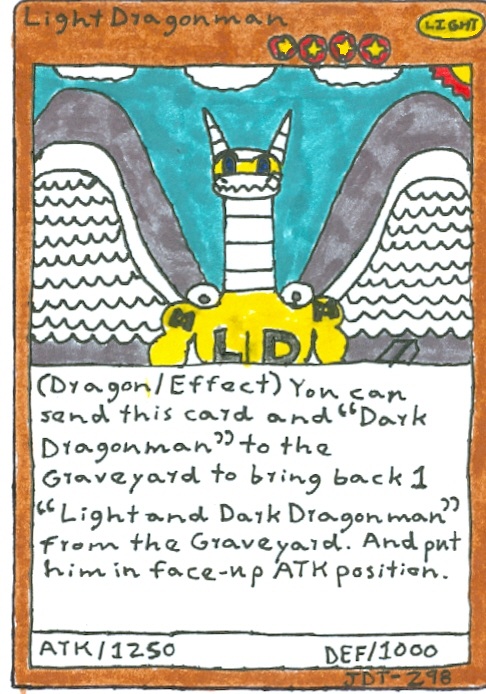 Light Dragonman
LIGHT
L D
(Dragon/Effect) You can
send this card and "Dark
Dragonman" to the
Graveyard to bring back 1
"Light and Dark Dragonman"
from the Graveyard. And put
him in face-up ATK position.
ATK/1250 DEF/1000
JDT-298